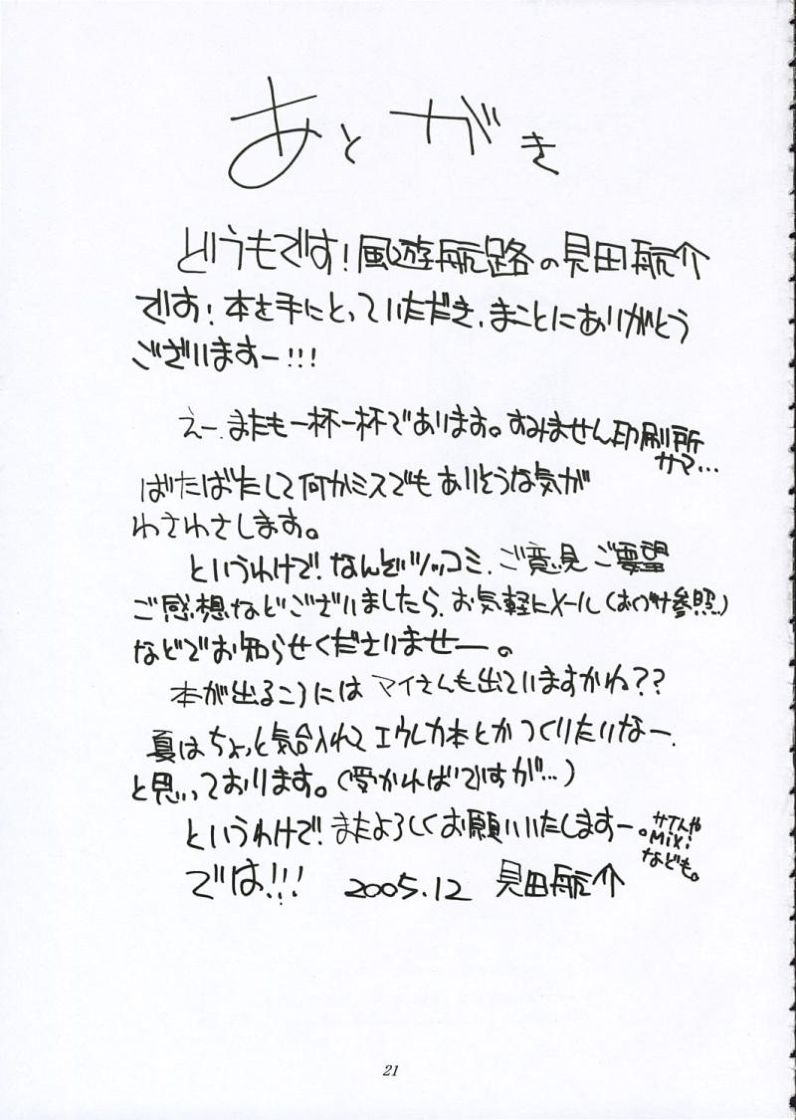 あとがき
どうもです！風遊航路の見田航介
です！本を手にとっていただき、まことにありがとう
ございますー!!!
えー、またも一杯一杯であります。すみません印刷所
サマ…
ばたばたして何かミスでもありそうな気が
わさわさします。
というわけで！なんぞツッコミ、ご意見ご要望
ご感想などございましたら、お気軽にメール(おくづけ参照)
などでお知らせくださいませー。
本が出るころにはマイさんも出ていますかね??
夏はちょっと気合入れてエウレカ本とかつくりたいなー、
と思いております。(受かればですが…)
というわけで！またよろしくお願いいたしますー。
サイトや
mixi
なども。
では!!! 2005.12 見田航介
21